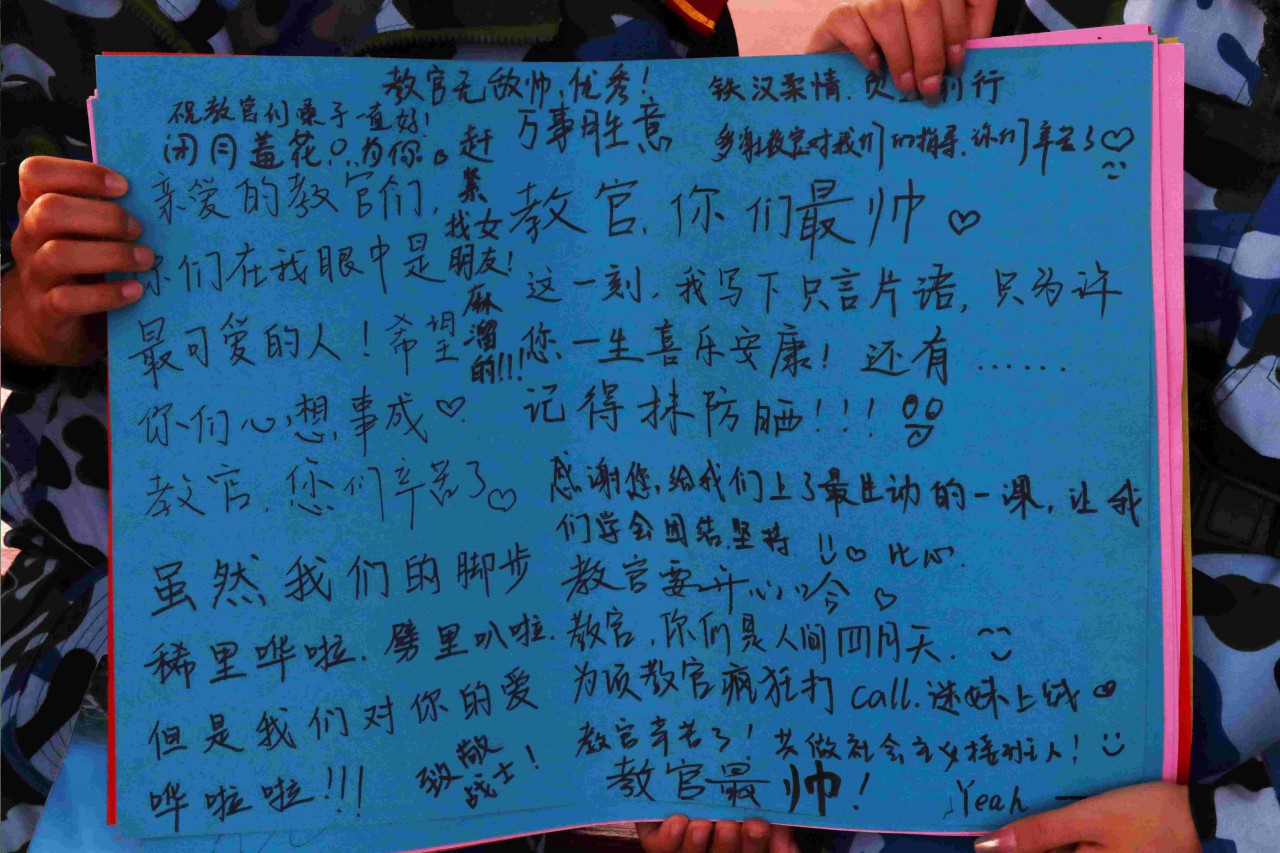 教官无敌帅,优秀!
祝教官们嗓子一直好!
闭月羞花,只为你。
赶
紧
找女
朋友!
麻
溜
的!!!
万事胜意
亲爱的教官们,
你们在我眼中是
最可爱的人!希望
你们心想事成♡
教官,您们辛苦了♡
虽然我们的脚步
稀里哗啦,劈里叭啦,
但是我们对你的爱
哗啦啦!!!
致敬
战士!
铁汉柔情,行
多谢教官对我们的指导,你们辛苦了♡
教官,你们最帅♡
这一刻,我写下只言片语,只为许
您一生喜乐安康!还有……
记得抹防晒!!!
感谢您,给我们上了最生动的一课,让我
们学会团结,坚持 ♡ 比心
教官要开心哈♡
教官,你们是人间四月天.
为项教官疯狂打call.迷妹上线♥
教官辛苦了!共做社会主义接班人!
教官最帅!
Yeah